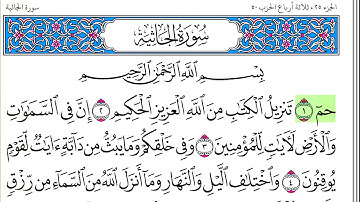 الجزء ٢٥، ثلاثة أرباع الحزب ٥٠
سورة الجاثية
سُورَةُ الجَاثِيَةِ
بِسْمِ اللَّهِ الرَّحْمَٰنِ الرَّحِيمِ
حمٓ ١ تَنزِيلُ الْكِتَٰبِ مِنَ اللَّهِ الْعَزِيزِ الْحَكِيمِ ٢ إِنَّ فِي السَّمَٰوَٰتِ
وَالْأَرْضِ لَآيَٰتٍ لِّلْمُؤْمِنِينَ ٣ وَفِي خَلْقِكُمْ وَمَا يَبُثُّ مِن دَآبَّةٍ ءَايَٰتٌ لِّقَوْمٍ
يُوقِنُونَ ٤ وَاخْتِلَٰفِ الَّيْلِ وَالنَّهَارِ وَمَآ أَنزَلَ اللَّهُ مِنَ السَّمَآءِ مِن رِّزْقٍ